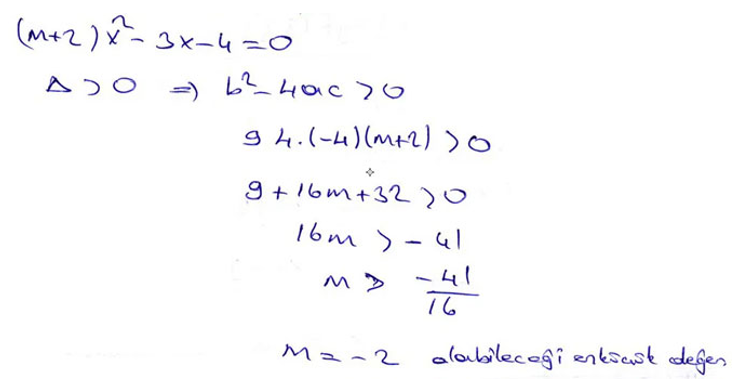 (m+2)x² - 3x - 4 = 0
Δ > 0 ⇒ b² - 4ac > 0
9 4.(-4)(m+2) > 0
9 + 16m + 32 > 0
16m > - 41
m > -41/16
m = -2 alabileceği en küçük değer.